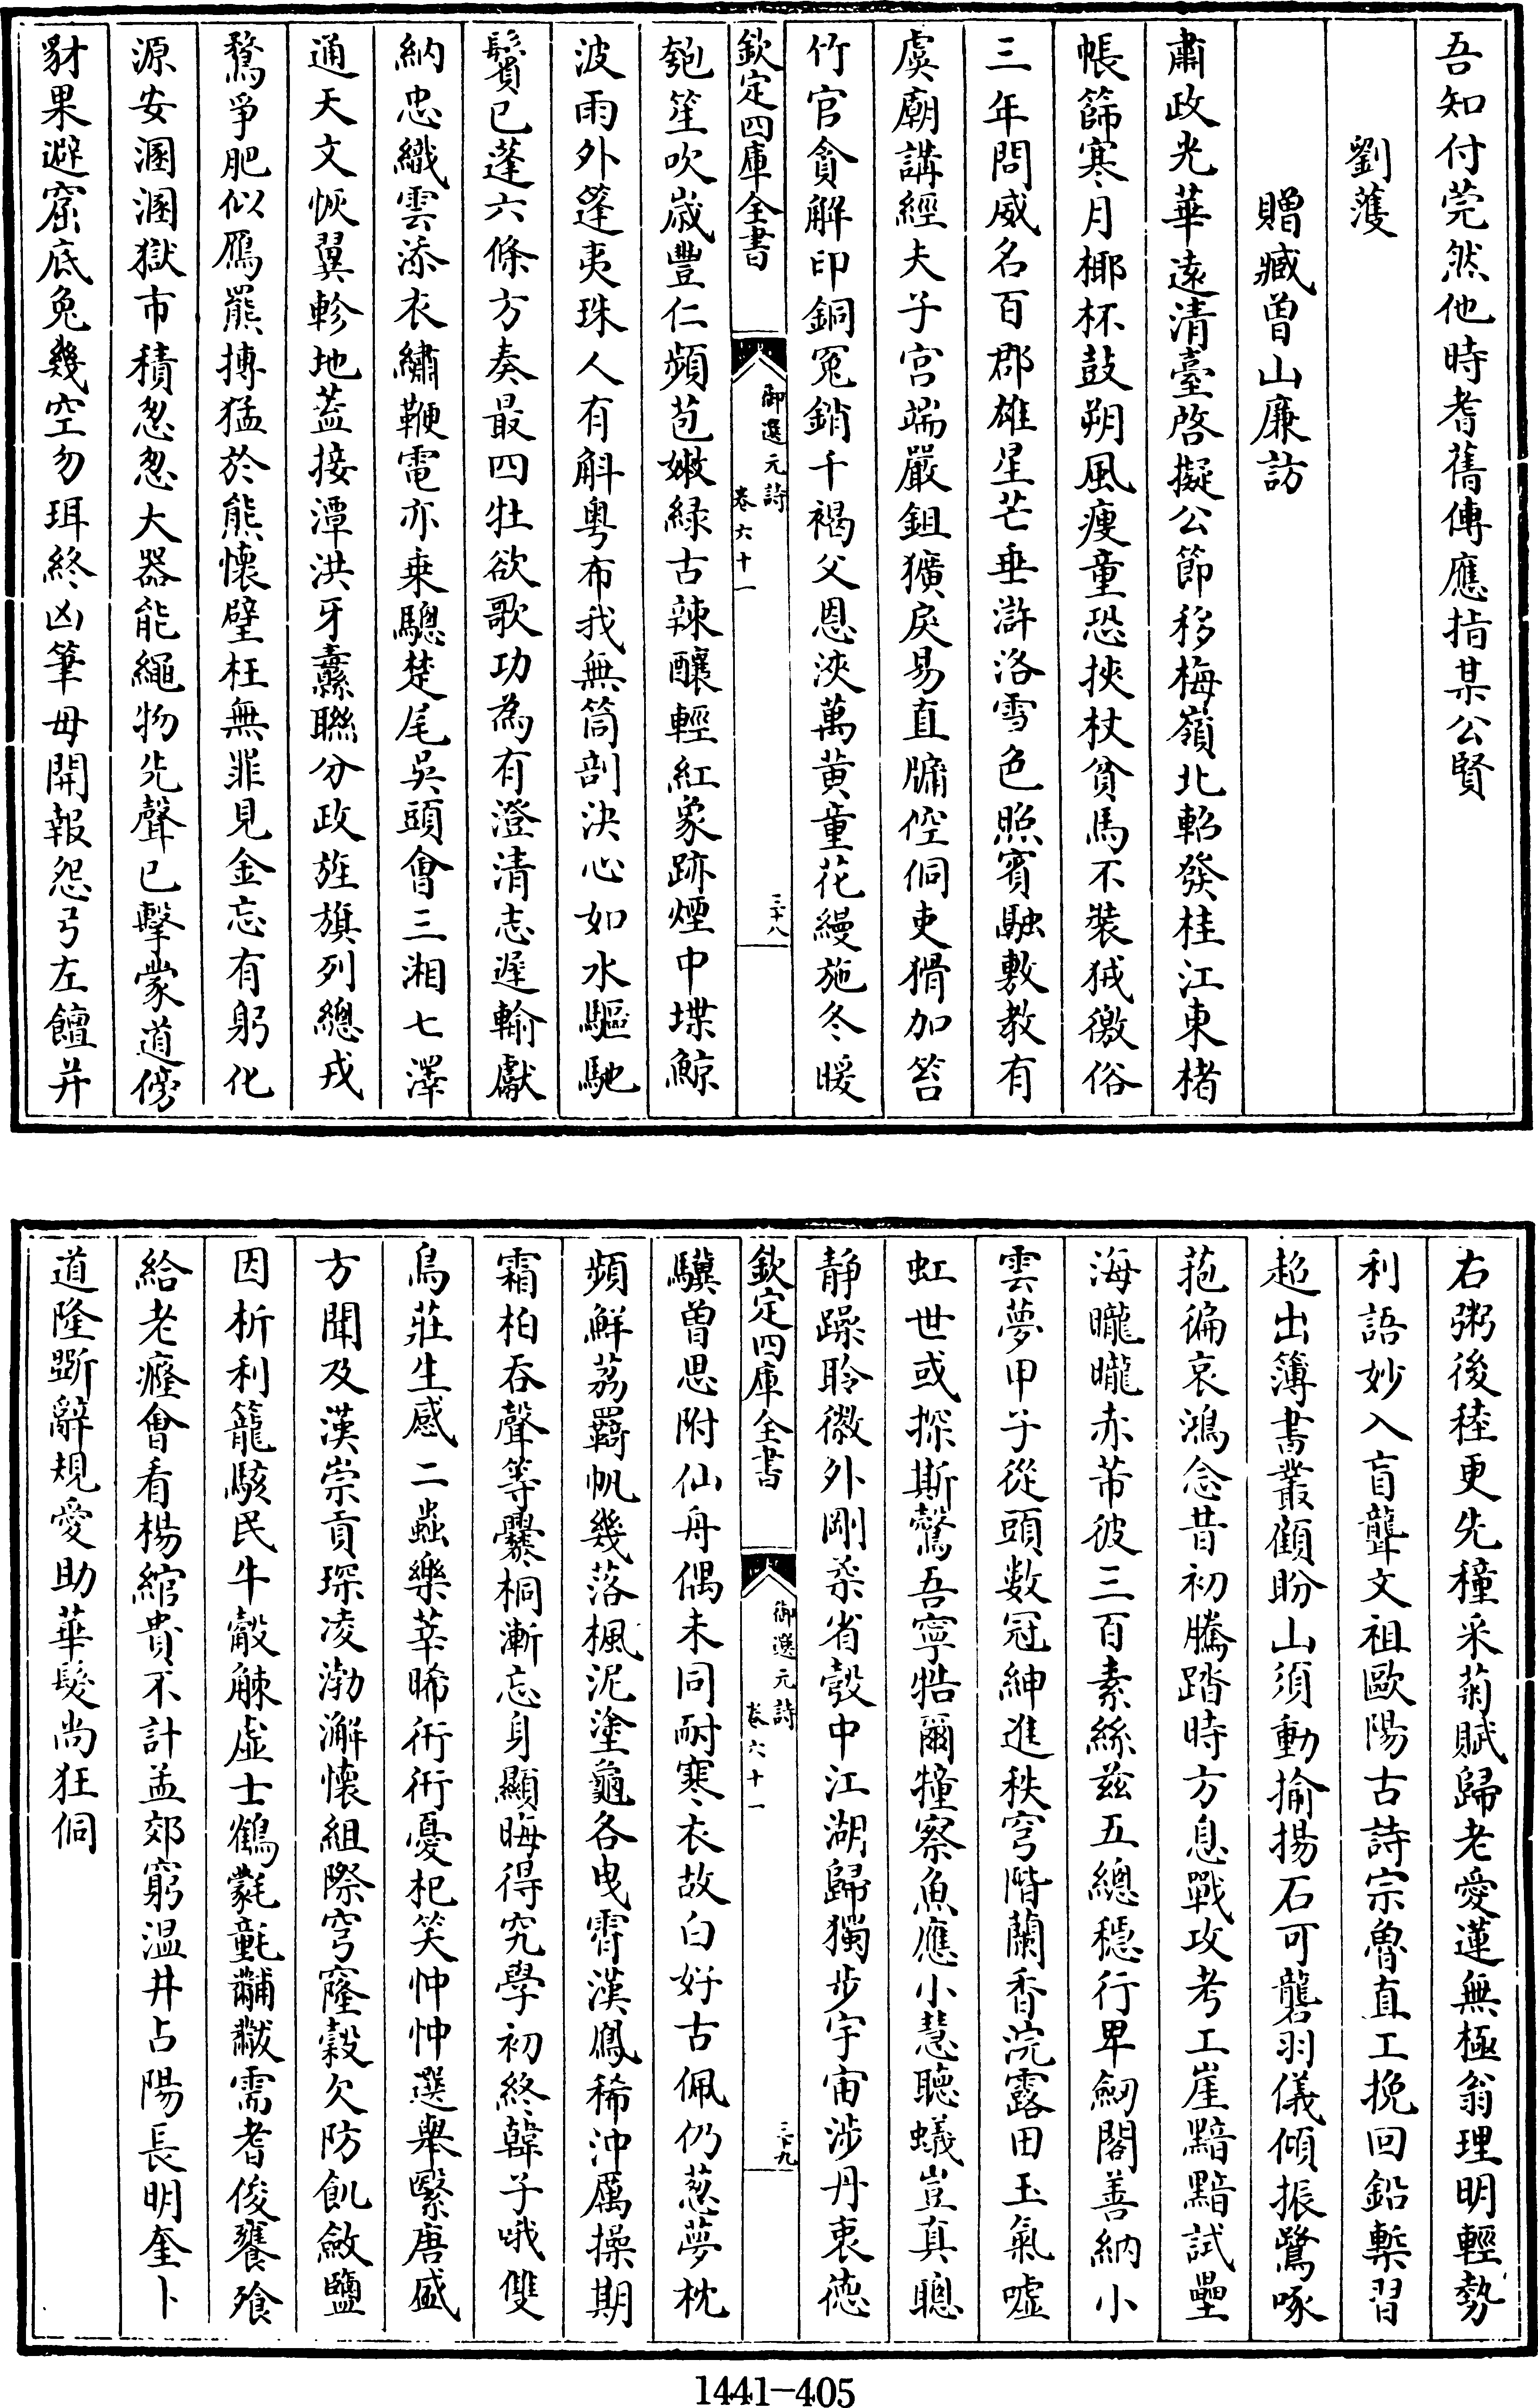 吾知付莞然他時耆舊傳應指某公賢
劉濩
贈臧曽山廉訪
肅政光華遠清臺啓擬公節移梅嶺北軺發桂江東楮
帳篩寒月椰杯鼓朔風瘦童恐挾杖貧馬不裝狨徼俗
三年問威名百郡雄星芒垂滸洛雪色照賓融敷教有
虞廟講經夫子宫端嚴鉏獷戾易直牖倥侗吏猾加笞
竹官貪解印銅冤銷千褐父恩浹萬黄童花縵施冬暖
欽定四庫全書
御選元詩
卷六十一
三十八
匏笙吹嵗豐仁蘋苞嫩緑古辣釀輕紅象跡煙中堞鯨
波雨外篷夷珠人有斛粤布我無筒剖決心如水驅馳
鬢已蓬六條方奏最四牡欲歌功為有澄清志遲輸獻
納忠織雲添衣繡鞭電亦乗驄楚尾吳頭會三湘七澤
通天文恢翼軫地蓋接潭洪牙纛聯分政旌旗列總戎
鶩爭肥似鴈羆搏猛於熊懷壁枉無罪見金忘有躬化
源安溷溷獄市積怱怱大器能繩物先聲已擊蒙道傍
豺果避窟底兔幾空勿珥終凶筆毋開報怨弓左饘并
右粥後稑更先穜采菊賦歸老愛蓮無極翁理明輕勢
利語妙入盲聾文祖歐陽古詩宗魯直工挽回鉛槧習
超出簿書叢顧盼山須動揄揚石可礱羽儀傾振鷺啄
菢徧哀鴻念昔初騰踏時方息戰攻考工崖黯黯試壘
海矓矓赤芾彼三百素絲兹五總穩行卑劒閣善納小
雲夢甲子從頭數冠紳進秩穹階蘭香浣露田玉氣嘘
虹世或探斯驚吾寧牿爾犝察魚應小慧聽蟻豈真聰
静躁聆微外剛柔省彀中江湖歸獨步宇宙涉丹衷徳
欽定四庫全書
御選元詩
卷六十一
三十九
驥曽思附仙舟偶未同耐寒衣故白好古佩仍葱夢枕
蘋鮮荔羇帆幾落楓泥塗龜各曳霄漢鳳稀沖厲操期
霜柏吞聲等爨桐漸忘身顯晦得究學初終韓子哦雙
鳥莊生感二蟲樂莘晞衎衎憂杞笑忡忡選舉緊唐盛
方聞及漢崇貢琛凌渤澥懷組際穹窿穀欠防飢斂鹽
因析利籠駭民牛觳觫虚士鶴氋氃黼黻需耆俊饔飱
給老癃會看楊綰貴不計孟郊窮温井占陽長明奎卜
道隆斲辭規愛助華髮尚狂侗
1441—405